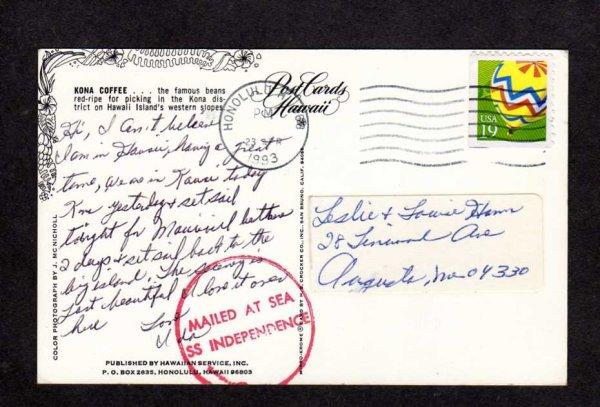 KONA COFFEE . . . the famous beans
red-ripe for picking in the Kona dis-
trict on Hawaii Island's western slopes.
Hi, I Can't believe
I am in Hawaii, having a great
time, We are in Kauai today
Kona yesterday & set sail
tonight for Maui will be there
2 days & set sail back to the
big island. The scenery is
Just beautiful I love it over
here Love
Ida
COLOR PHOTOGRAPH BY J. McNICHOLL
Post Cards
Hawaii
HONOLULU
PM
23
1993
USA
19
Leslie & Louise Hann
28 Linwood Ave
Augusta, Me 04330
MAILED AT SEA
SS INDEPENDENCE
PUBLISHED BY HAWAIIAN SERVICE, INC.
P. O. BOX 2835, HONOLULU, HAWAII 96803